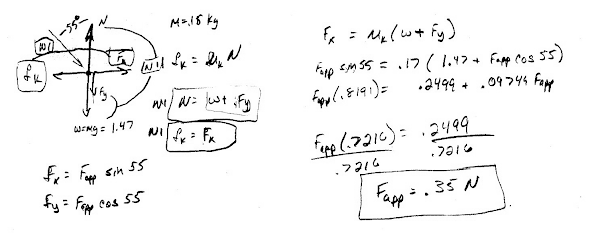 55° N M=.15 kg
N1
fk Fx N1 fk = μk N
Fy
N1 N = w + Fy
w=mg = 1.47 N1 fk = Fx
fx = Fapp sin 55
fy = Fapp cos 55
Fx = μk (w + Fy)
Fapp sin 55 = .17 ( 1.47 + Fapp cos 55)
Fapp (.8191) = .2499 + .09749 Fapp
Fapp (.7216) = .2499
.7216 .7216
Fapp = .35 N